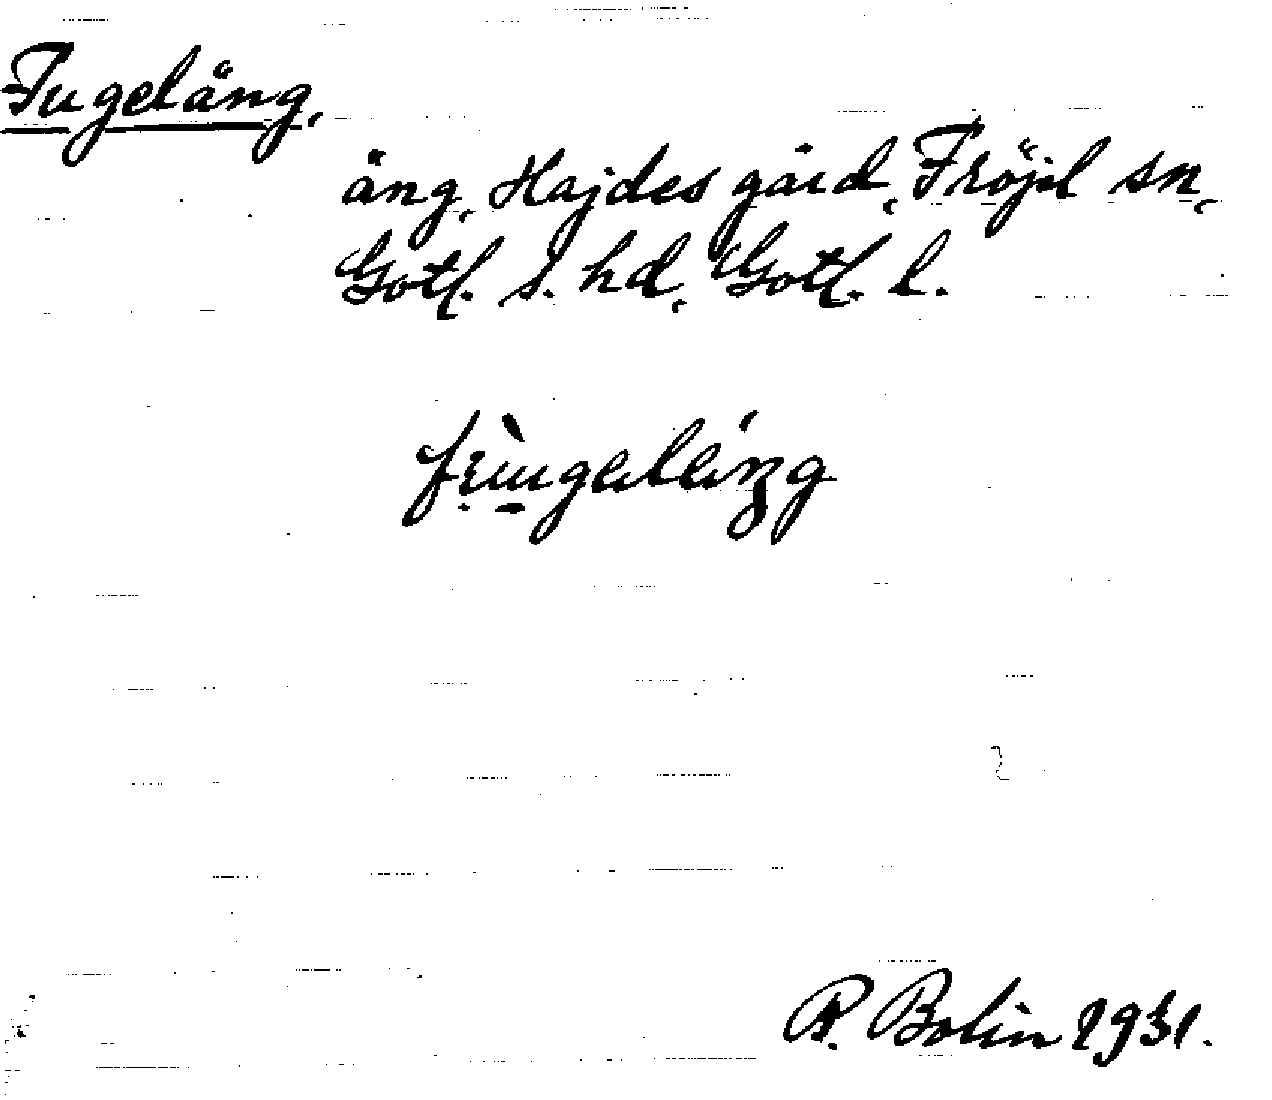 Fugeläng,
äng, Hajdes gård, Fröjel sn,
Gotl. s. hd, Gotl. l.
R. Bolin 1931.